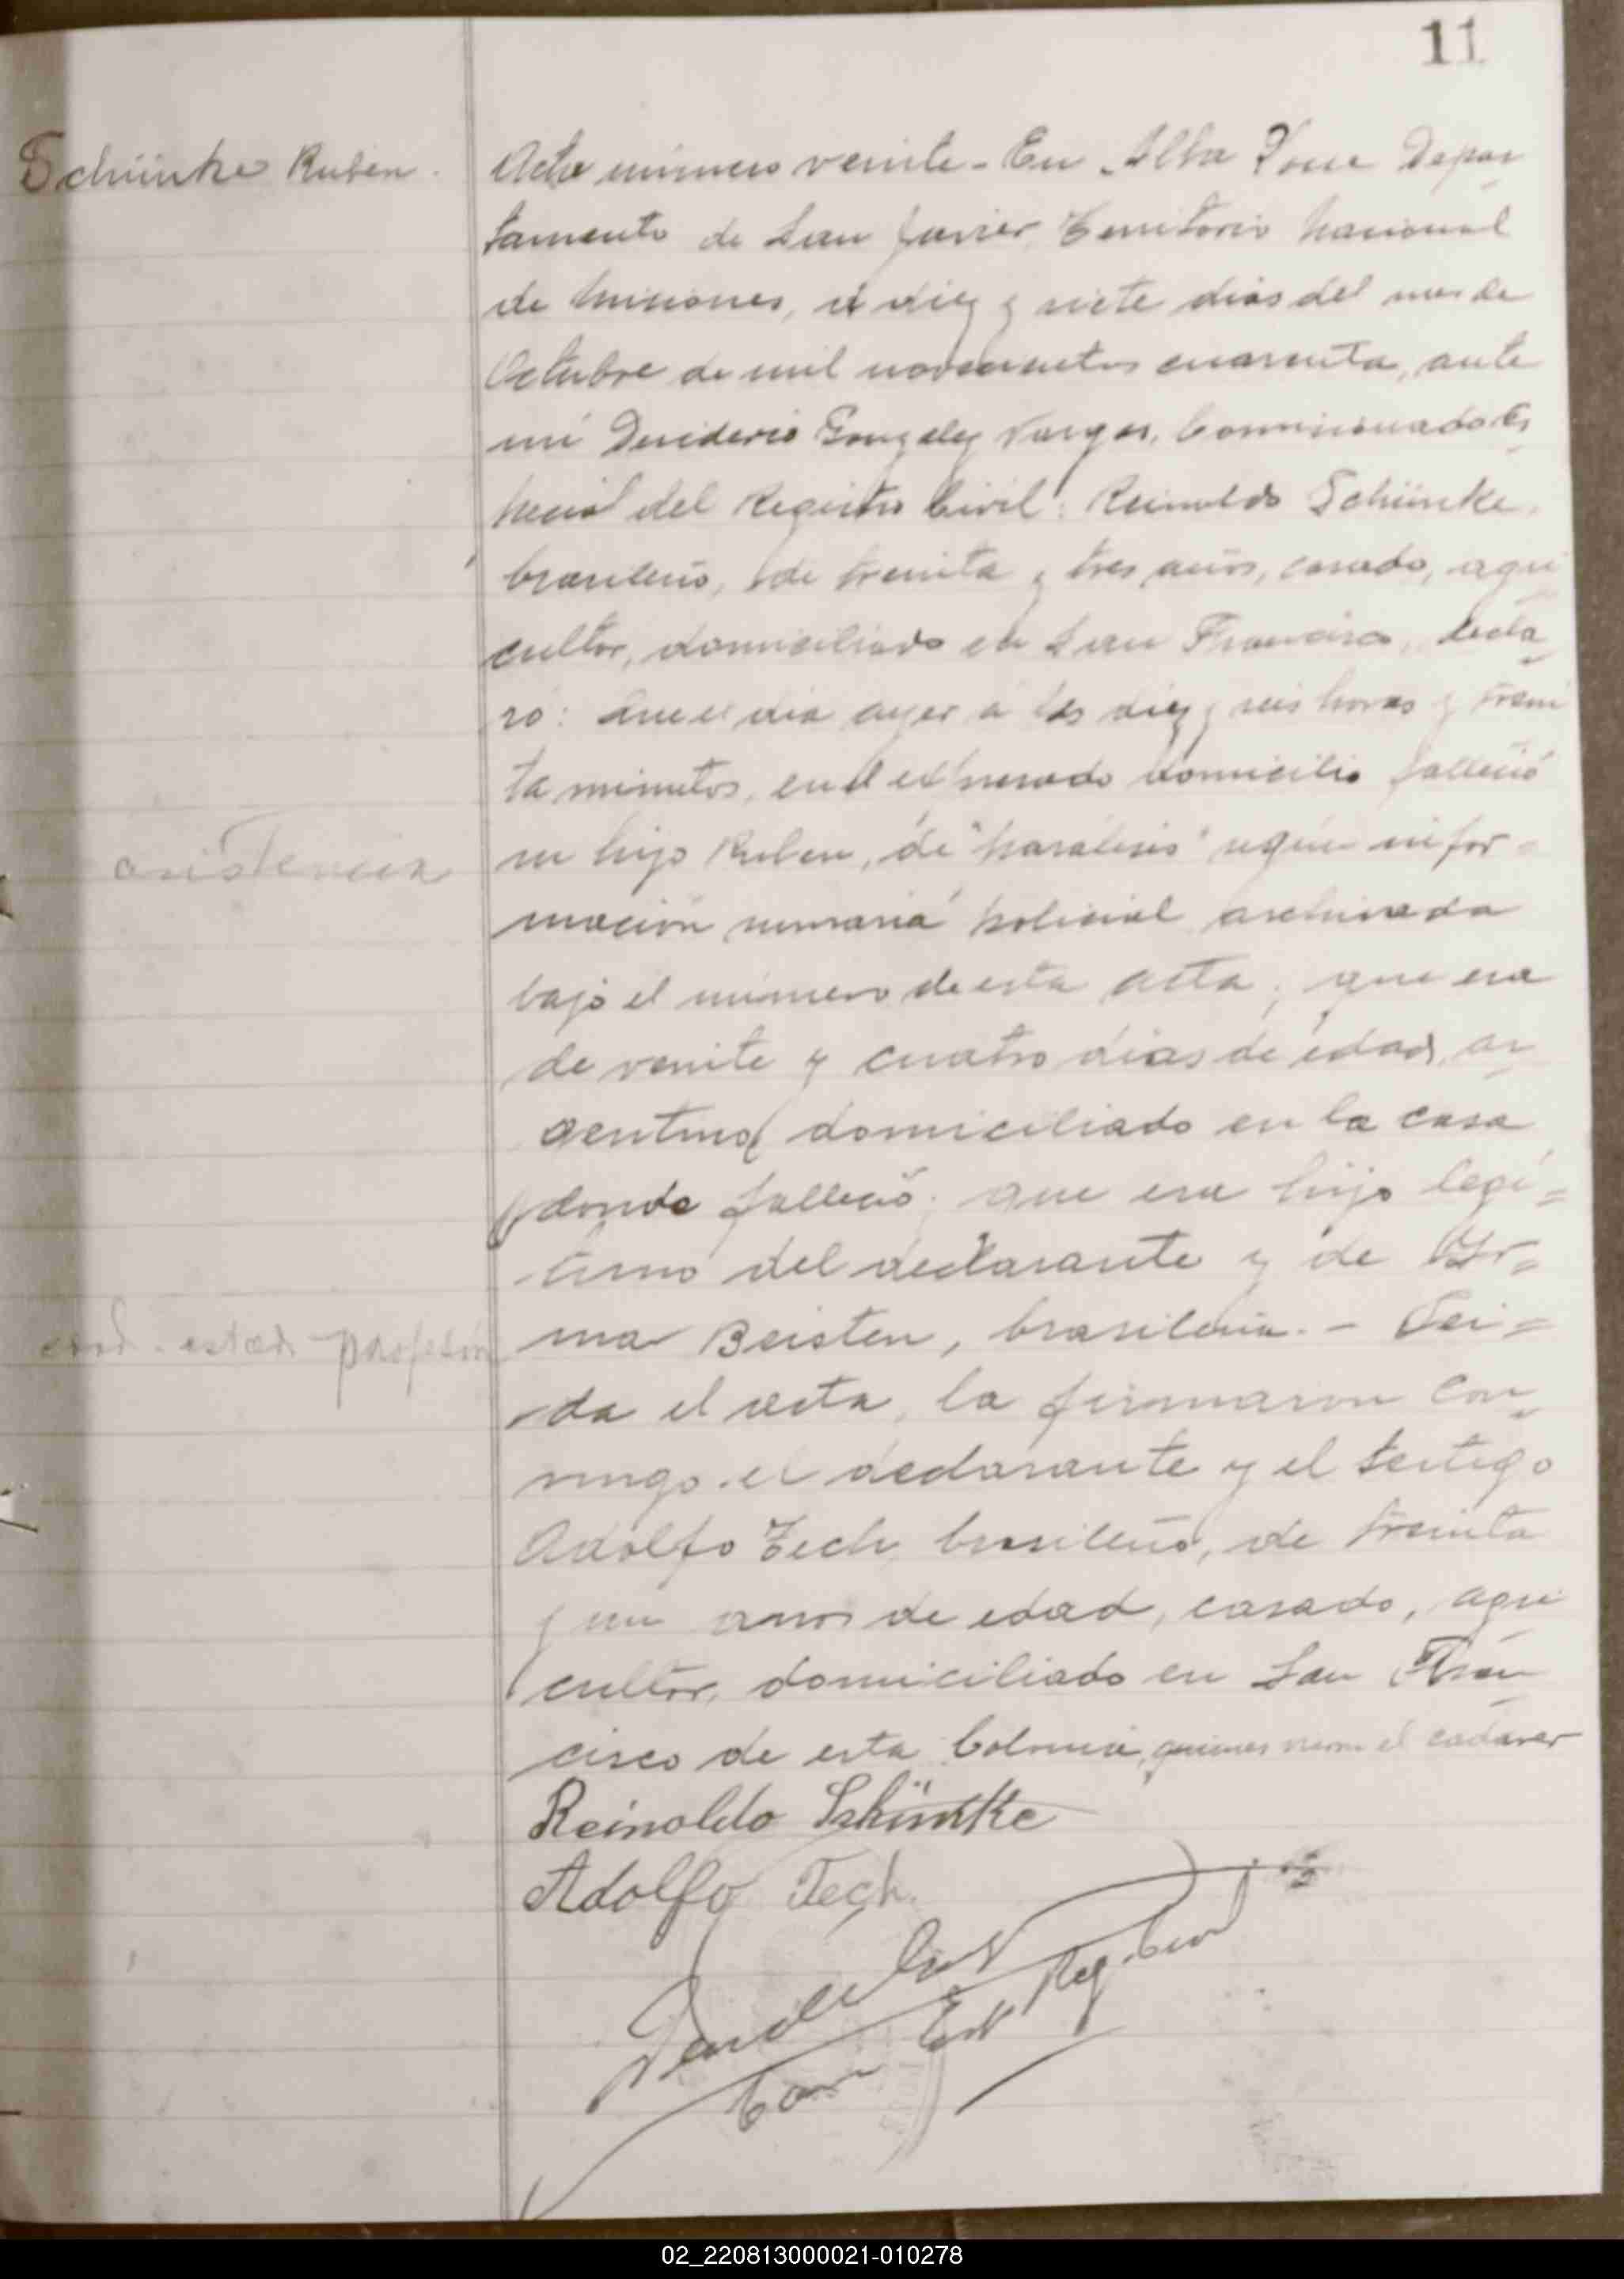 11
Schünke Ruben.
Acta número veinte - En Alba Posse Depar
tamento de San Javier, Territorio Nacional
de Misiones, a diez y siete dias del mes de
Octubre de mil novecientos cuarenta, ante
mi Desiderio Gonzalez Vargas, Comisionado Es
pecial del Registro Civil: Reinoldo Schünke,
brasileño, de treinta y tres años, casado, agri
cultor, domiciliado en San Francisco, decla
ró: Que el dia ayer a las diez y seis horas y trein
ta minutos, en el expresado domicilio falleció
su hijo Ruben, de "parálisis" según infor=
mación sumaria policial archivada
asistencia
bajo el número de esta acta; que era
de veinte y cuatro dias de edad, ar
gentino, domiciliado en la casa
donde falleció; que era hijo legí=
timo del declarante y de
ma Beisten, brasileña. - Lei=
edad - estado - profesión
da el acta, la firmaron con
migo el declarante y el testigo
Adolfo Tech, brasileño, de treinta
y un años de edad, casado, agri
cultor, domiciliado en San Fran
cisco de esta Colonia, quienes vieron el cadáver
Reinoldo Schünke
Adolfo Tech.
Com Esp Reg. Civil
02_220813000021-010278